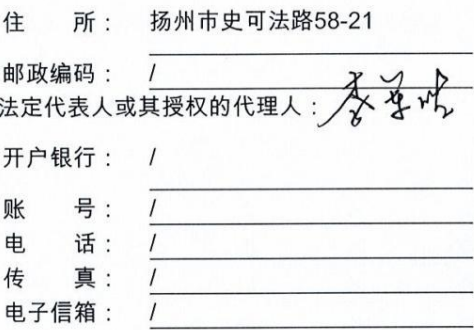 住 所： 扬州市史可法路58-21
邮政编码： /
法定代表人或其授权的代理人：
开户银行： /
账 号： /
电 话： /
传 真： /
电子信箱： /